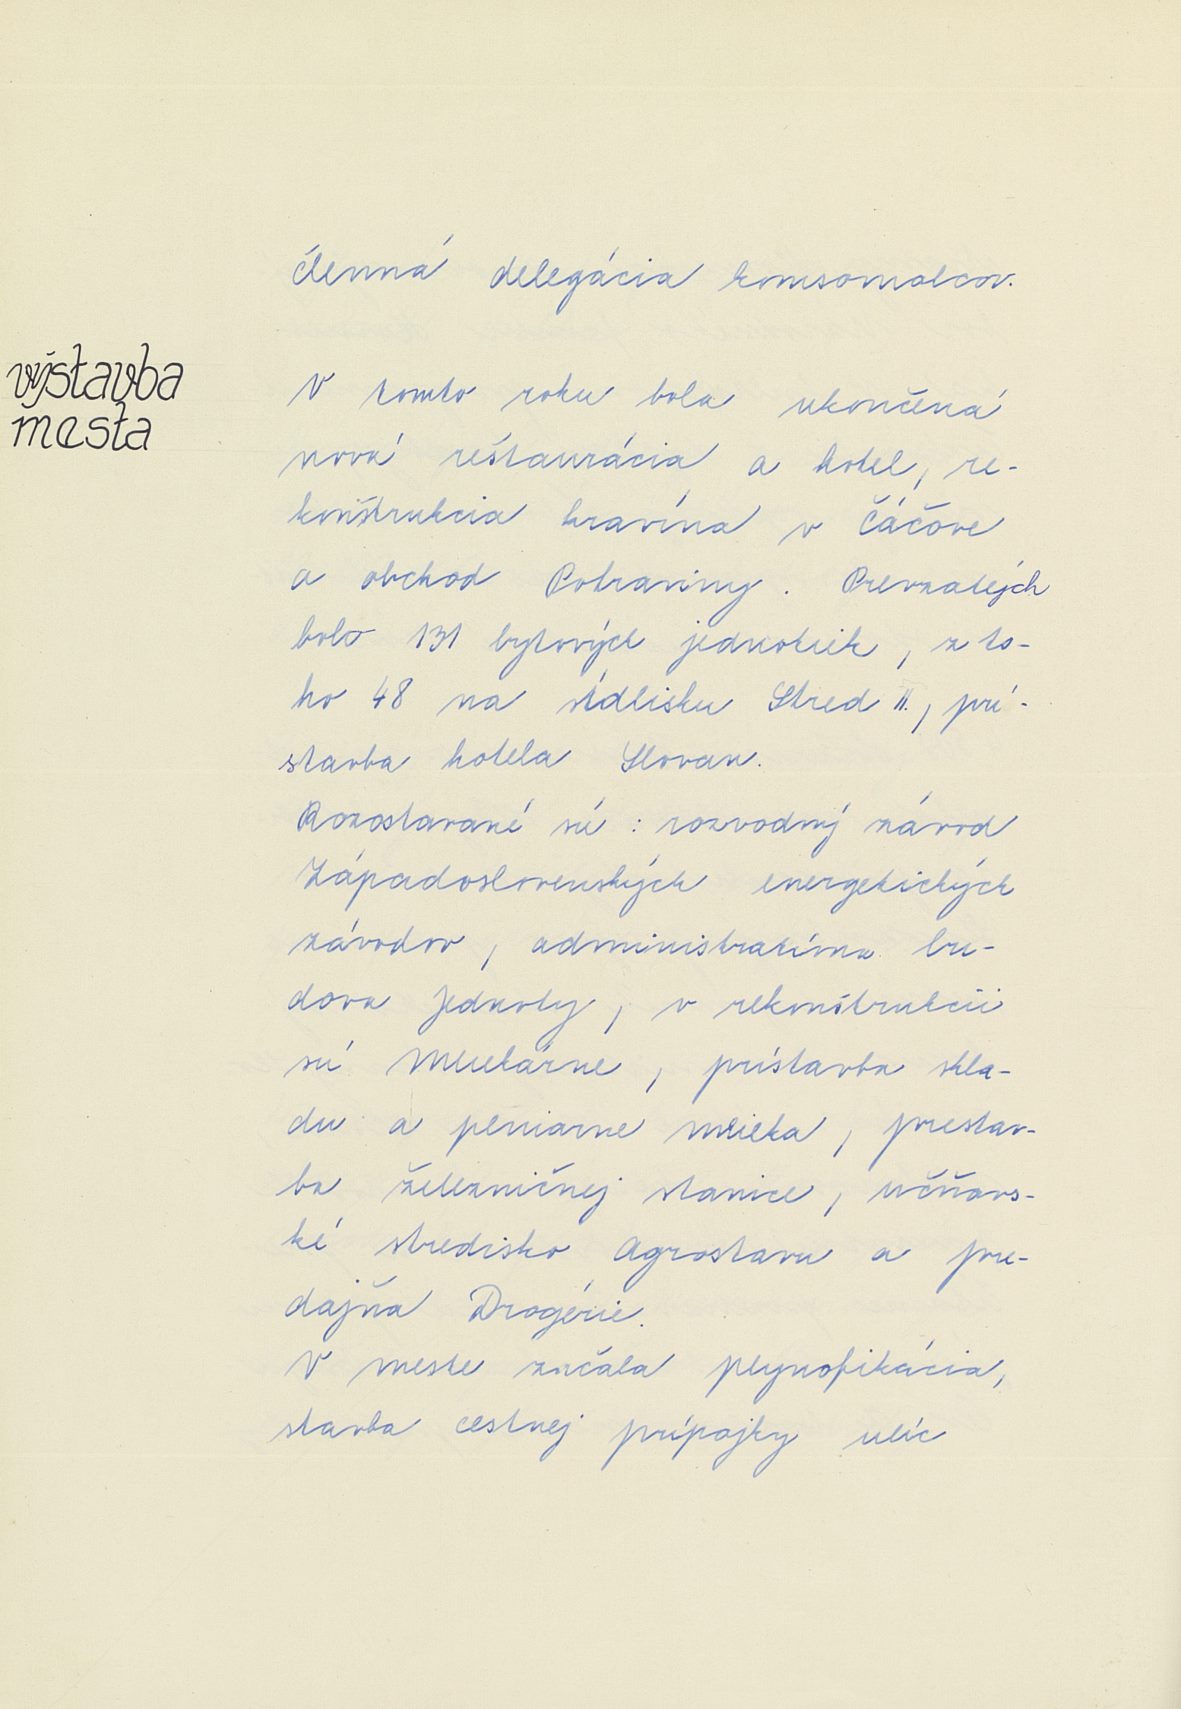 členná delegácia komsomolcov.
výstavba
mesta
V tomto roku bola ukončená
nová reštaurácia a hotel, re-
konštrukcia kravína v Čáčove
a obchod Potraviny. Prevzatých
bolo 131 bytových jednotiek, z to-
ho 48 na sídlisku Stred II., prí-
stavba hotela Slovan.
Rozostavané sú: rozvodný závod
Západoslovenských energetických
závodov, administratívna bu-
dova Jednoty, v rekonštrukcii
sú Mliekárne, prístavba skla-
du a plniarne mlieka, prestav-
ba železničnej stanice, učňovs-
ké stredisko Agrostavu a pre-
dajňa Drogérie.
V meste začala plynofikácia,
stavba cestnej prípojky ulíc